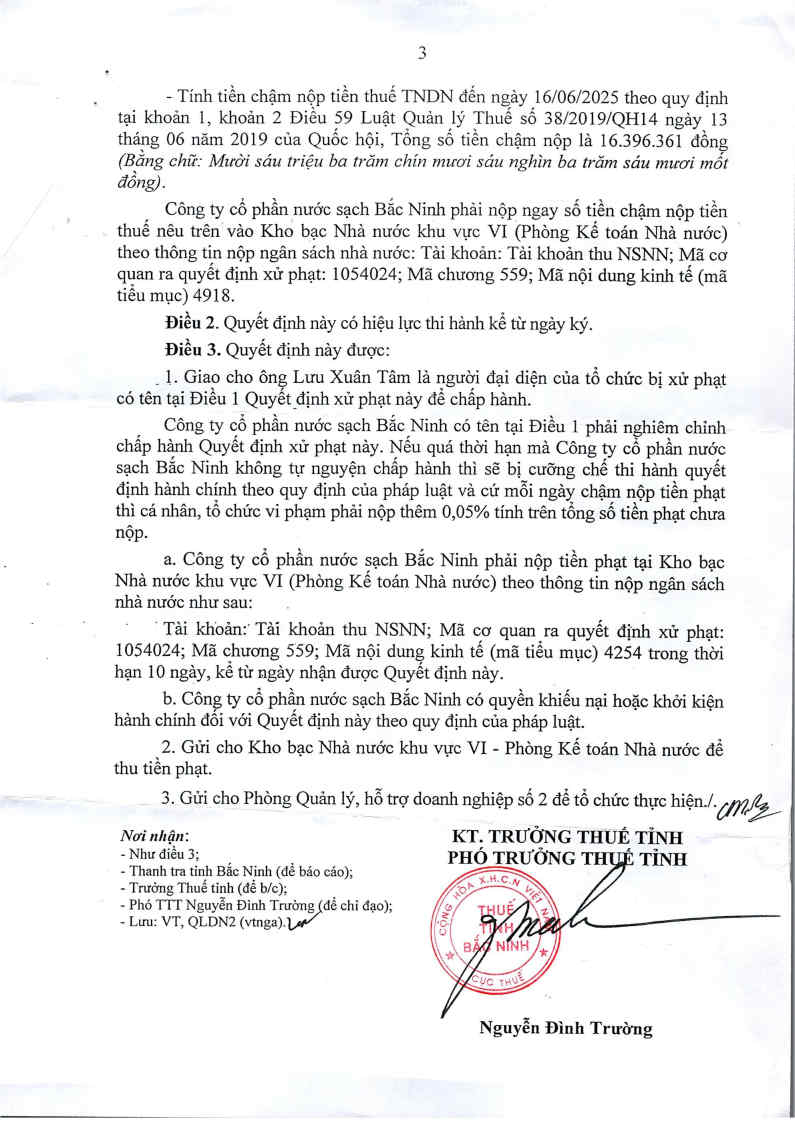 3
- Tính tiền chậm nộp tiền thuế TNDN đến ngày 16/06/2025 theo quy định
tại khoản 1, khoản 2 Điều 59 Luật Quản lý Thuế số 38/2019/QH14 ngày 13
tháng 06 năm 2019 của Quốc hội, Tổng số tiền chậm nộp là 16.396.361 đồng
(Bằng chữ: Mười sáu triệu ba trăm chín mươi sáu nghìn ba trăm sáu mươi mốt
đồng).
Công ty cổ phần nước sạch Bắc Ninh phải nộp ngay số tiền chậm nộp tiền
thuế nêu trên vào Kho bạc Nhà nước khu vực VI (Phòng Kế toán Nhà nước)
theo thông tin nộp ngân sách nhà nước: Tài khoản: Tài khoản thu NSNN; Mã cơ
quan ra quyết định xử phạt: 1054024; Mã chương 559; Mã nội dung kinh tế (mã
tiểu mục) 4918.
Điều 2. Quyết định này có hiệu lực thi hành kể từ ngày ký.
Điều 3. Quyết định này được:
1. Giao cho ông Lưu Xuân Tâm là người đại diện của tổ chức bị xử phạt
có tên tại Điều 1 Quyết định xử phạt này để chấp hành.
Công ty cổ phần nước sạch Bắc Ninh có tên tại Điều 1 phải nghiêm chỉnh
chấp hành Quyết định xử phạt này. Nếu quá thời hạn mà Công ty cổ phần nước
sạch Bắc Ninh không tự nguyện chấp hành thì sẽ bị cưỡng chế thi hành quyết
định hành chính theo quy định của pháp luật và cứ mỗi ngày chậm nộp tiền phạt
thì cá nhân, tổ chức vi phạm phải nộp thêm 0,05% tính trên tổng số tiền phạt chưa
nộp.
a. Công ty cổ phần nước sạch Bắc Ninh phải nộp tiền phạt tại Kho bạc
Nhà nước khu vực VI (Phòng Kế toán Nhà nước) theo thông tin nộp ngân sách
nhà nước như sau:
Tài khoản: Tài khoản thu NSNN; Mã cơ quan ra quyết định xử phạt:
1054024; Mã chương 559; Mã nội dung kinh tế (mã tiểu mục) 4254 trong thời
hạn 10 ngày, kể từ ngày nhận được Quyết định này.
b. Công ty cổ phần nước sạch Bắc Ninh có quyền khiếu nại hoặc khởi kiện
hành chính đối với Quyết định này theo quy định của pháp luật.
2. Gửi cho Kho bạc Nhà nước khu vực VI - Phòng Kế toán Nhà nước để
thu tiền phạt.
3. Gửi cho Phòng Quản lý, hỗ trợ doanh nghiệp số 2 để tổ chức thực hiện./.
Nơi nhận:
- Như điều 3;
- Thanh tra tỉnh Bắc Ninh (để báo cáo);
- Trưởng Thuế tỉnh (để b/c);
- Phó TTT Nguyễn Đình Trường (để chỉ đạo);
- Lưu: VT, QLDN2 (vtnga).
KT. TRƯỞNG THUẾ TỈNH
PHÓ TRƯỞNG THUẾ TỈNH
CỘNG HÒA X.H.C.N VIỆT NAM
THUẾ
TỈNH
BẮC NINH
CỤC THUẾ
Nguyễn Đình Trường